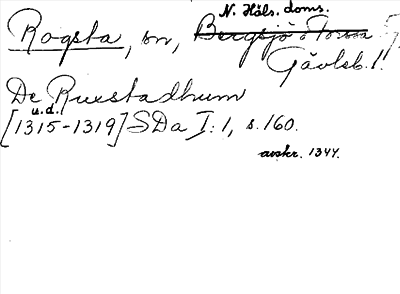 N. Häls. doms.
Rogsta, sn, Bergsjö o Torsa
Gävleb. l.
De Ruestadhum
u.d.
[1315-1319] SDa I:1, s. 160.
avskr. 1344.